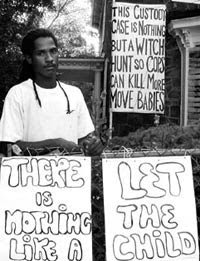 THIS CUSTODY
CASE IS NOTHING
BUT A WITCH
HUNT SO COPS
CAN KILL MORE
MOVE BABIES
THERE
IS
NOTHING
LIKE A
LET
THE
CHILD